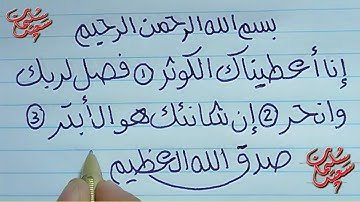 بسم الله الرحمن الرحيم
إنا أعطيناك الكوثر ① فصل لربك
وانحر ② إن شانئك هو الأبتر ③
صدق الله العظيم